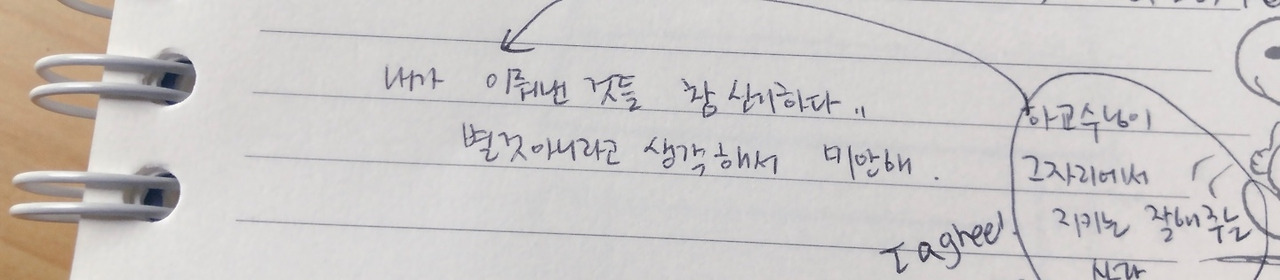 내가 이뤄낸 것들 참 신기하다..
별것아니라고 생각해서 미안해.
하교수님이
그자리에서
지키는 잘해주는
I agree!